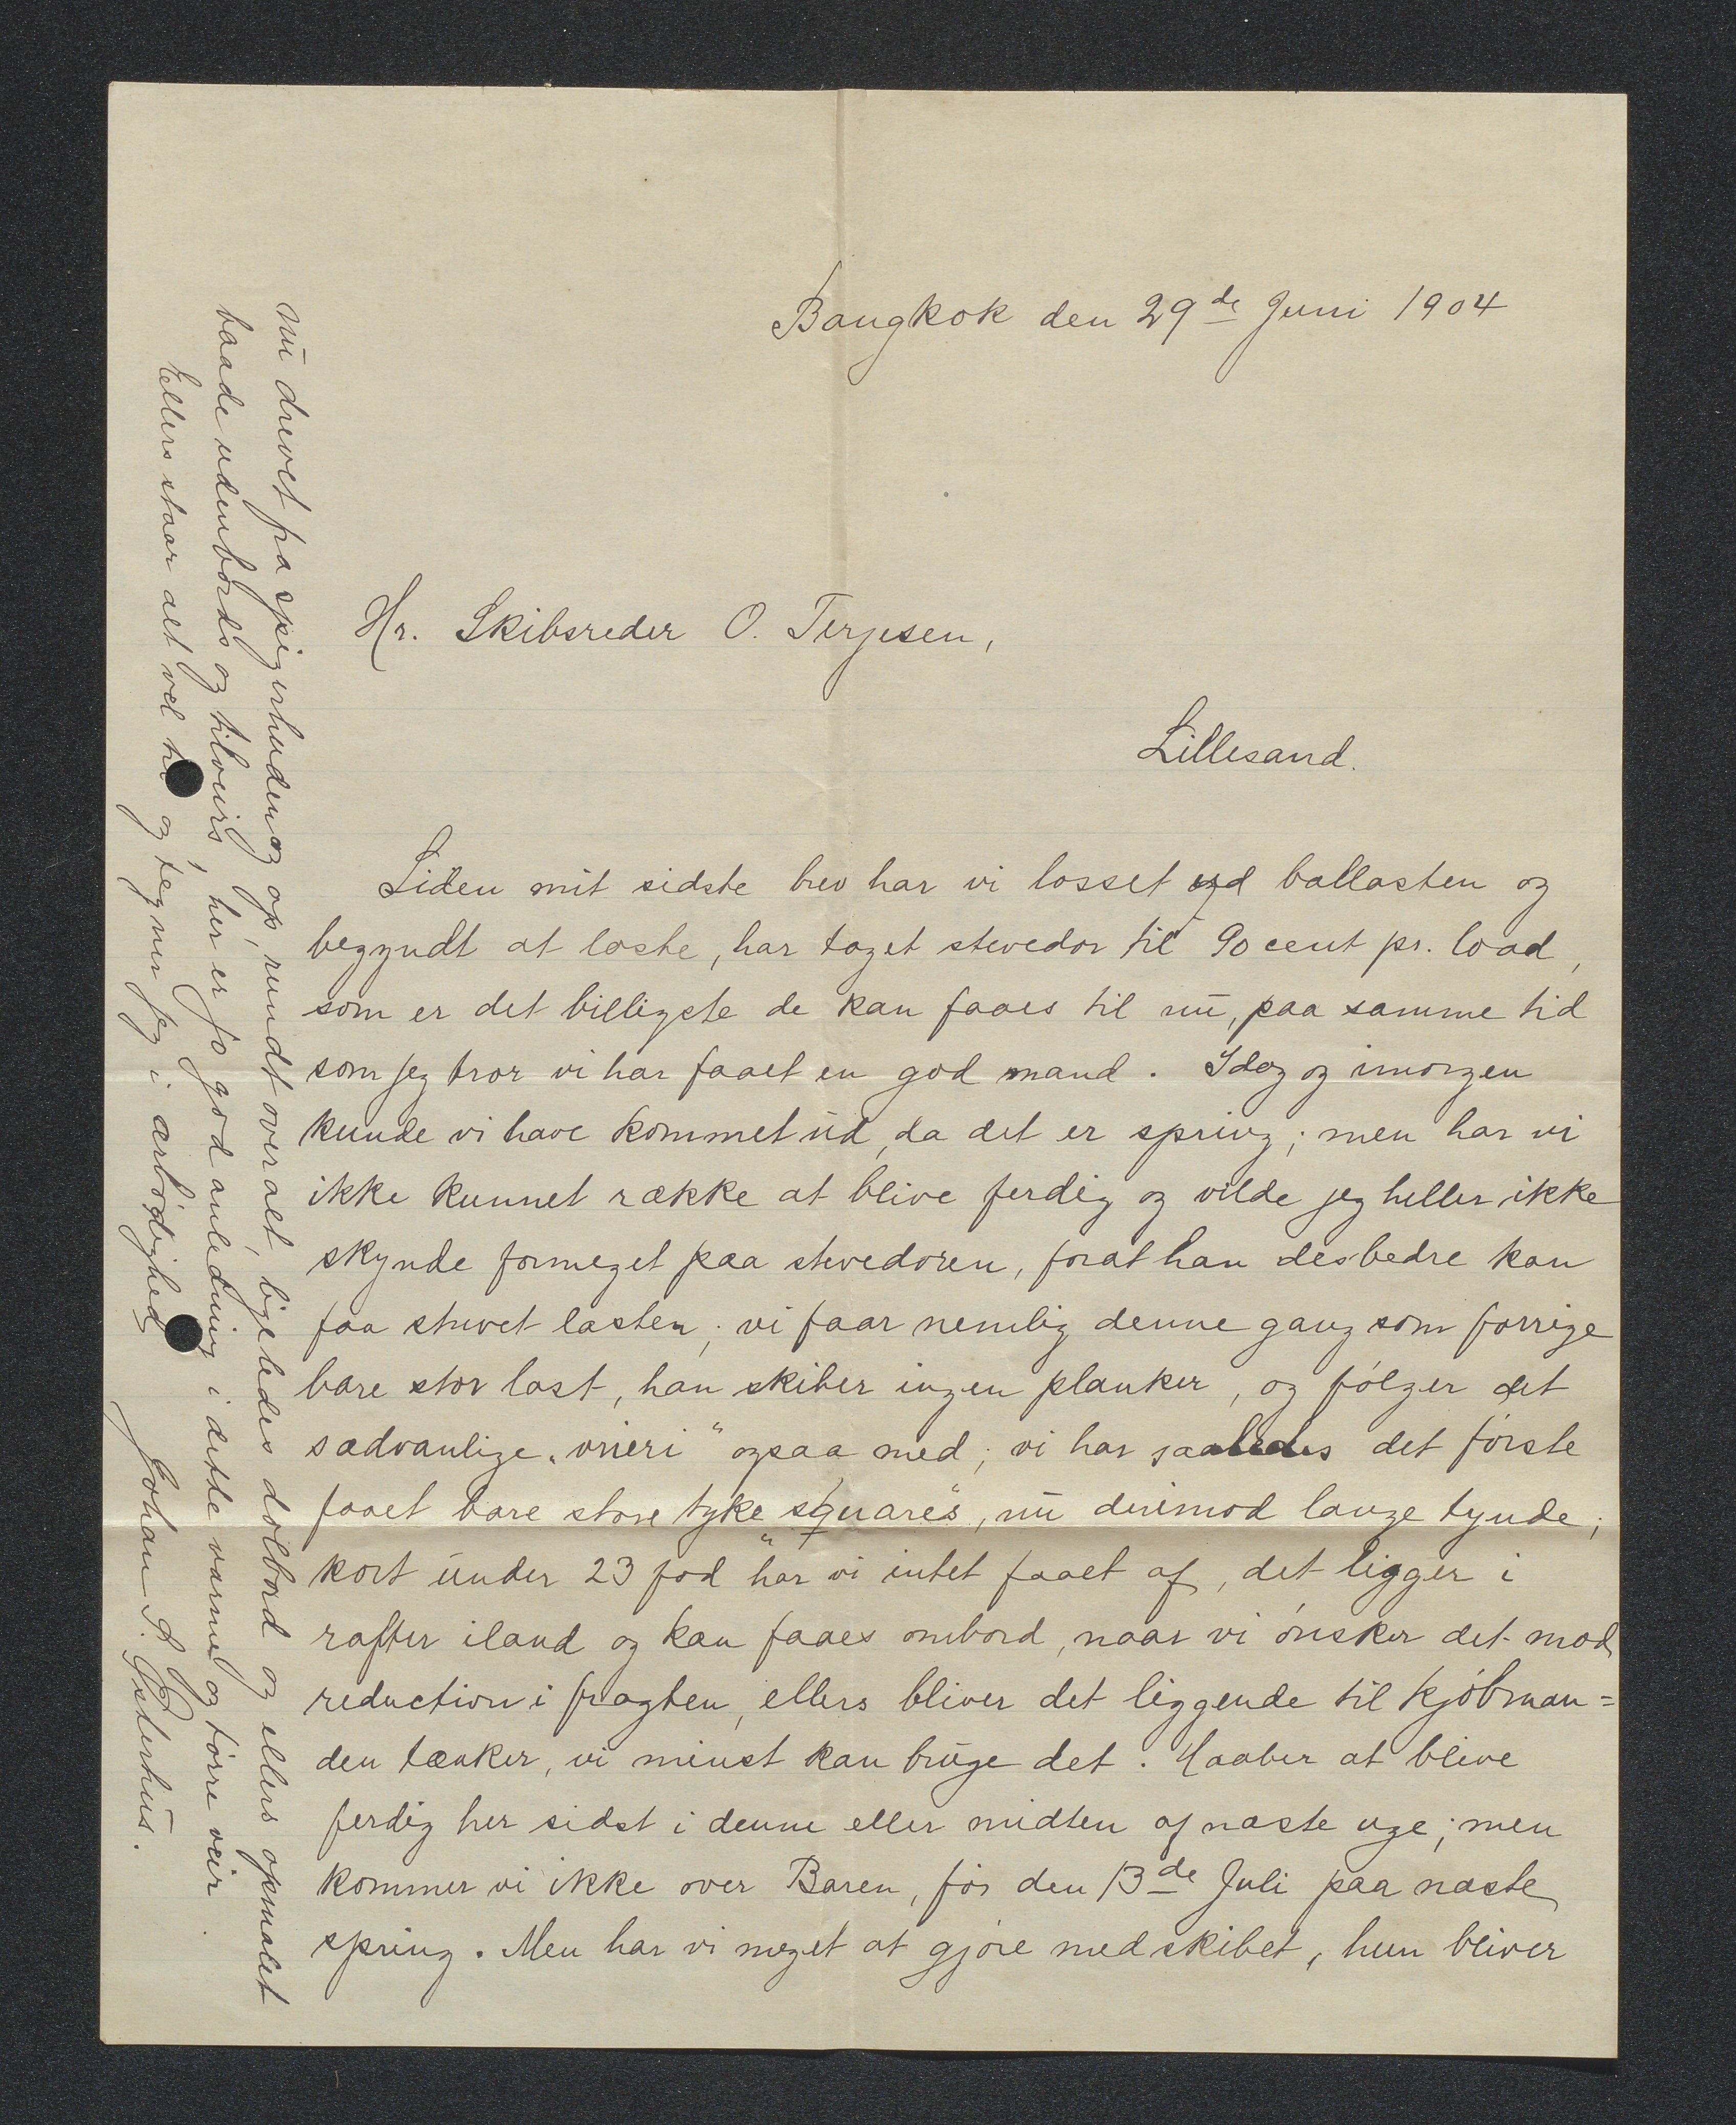 Bangkok den 29de Juni 1904
Hr. Skibsreder O. Terjesen,
Lillesand.
Siden mit sidste brev har vi losset ud ballasten og
begyndt at laste, har taget stevedor til 90 cent pr. load,
som er det billigste de kan faaes til nū, paa samme tid
som jeg tror vi har faaet en god mand. Idag og imorgen
kunde vi have kommet ūd, da det er spring; men har vi
ikke kunnet række at blive ferdig og vilde jeg heller ikke
skynde formeget paa stevedoren, forat han desbedre kan
faa stuvet lasten; vi faar nemlig denne gang som forrige
bare stor last, han skiber ingen planker, og følger det
sædvanlige „vrieri“ ogsaa med; vi har saaledes det første
faaet bare store tyke „squares“, nū derimod lange tynde;
kort ūnder 23 fod har vi intet faaet af, det ligger i
rafter iland og kan faaes ombord, naar vi ønsker det mod
reduction i fragten, ellers bliver det liggende til kjøbman=
den tænker, vi minst kan brūge det. Haaber at blive
ferdig her sidst i denne eller midten af næste uge; men
kommer vi ikke over Baren, før den 13de Juli paa næste
spring. Men har vi meget at gjøre med skibet, hun bliver
nū drevet fra spigerhuden og op, rundt overalt, ligeledes dolbord og ellers opmalet
baade udenbords og tilveirs, her er jo god anledning i dette varme og tørre veir.
Ellers staar alt vel og tegner jeg i ærbødighed
Johan A. Østerhūs.